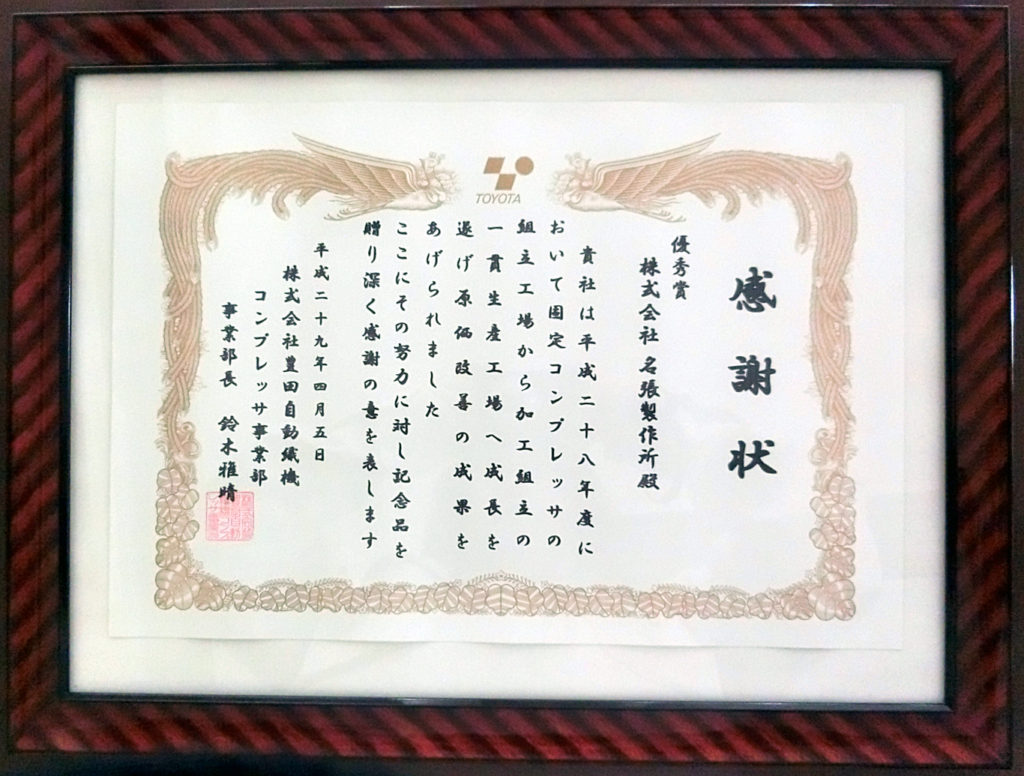 TOYOTA
感謝状
優秀賞
株式会社 名張製作所殿
貴社は平成二十八年度に
おいて固定コンプレッサの
組立工場から加工組立の
一貫生産工場へ成長を
遂げ原価改善の成果を
あげられました
ここにその努力に対し記念品を
贈り深く感謝の意を表します
平成二十九年四月五日
株式会社豊田自動織機
コンプレッサ事業部
事業部長 鈴木雅晴